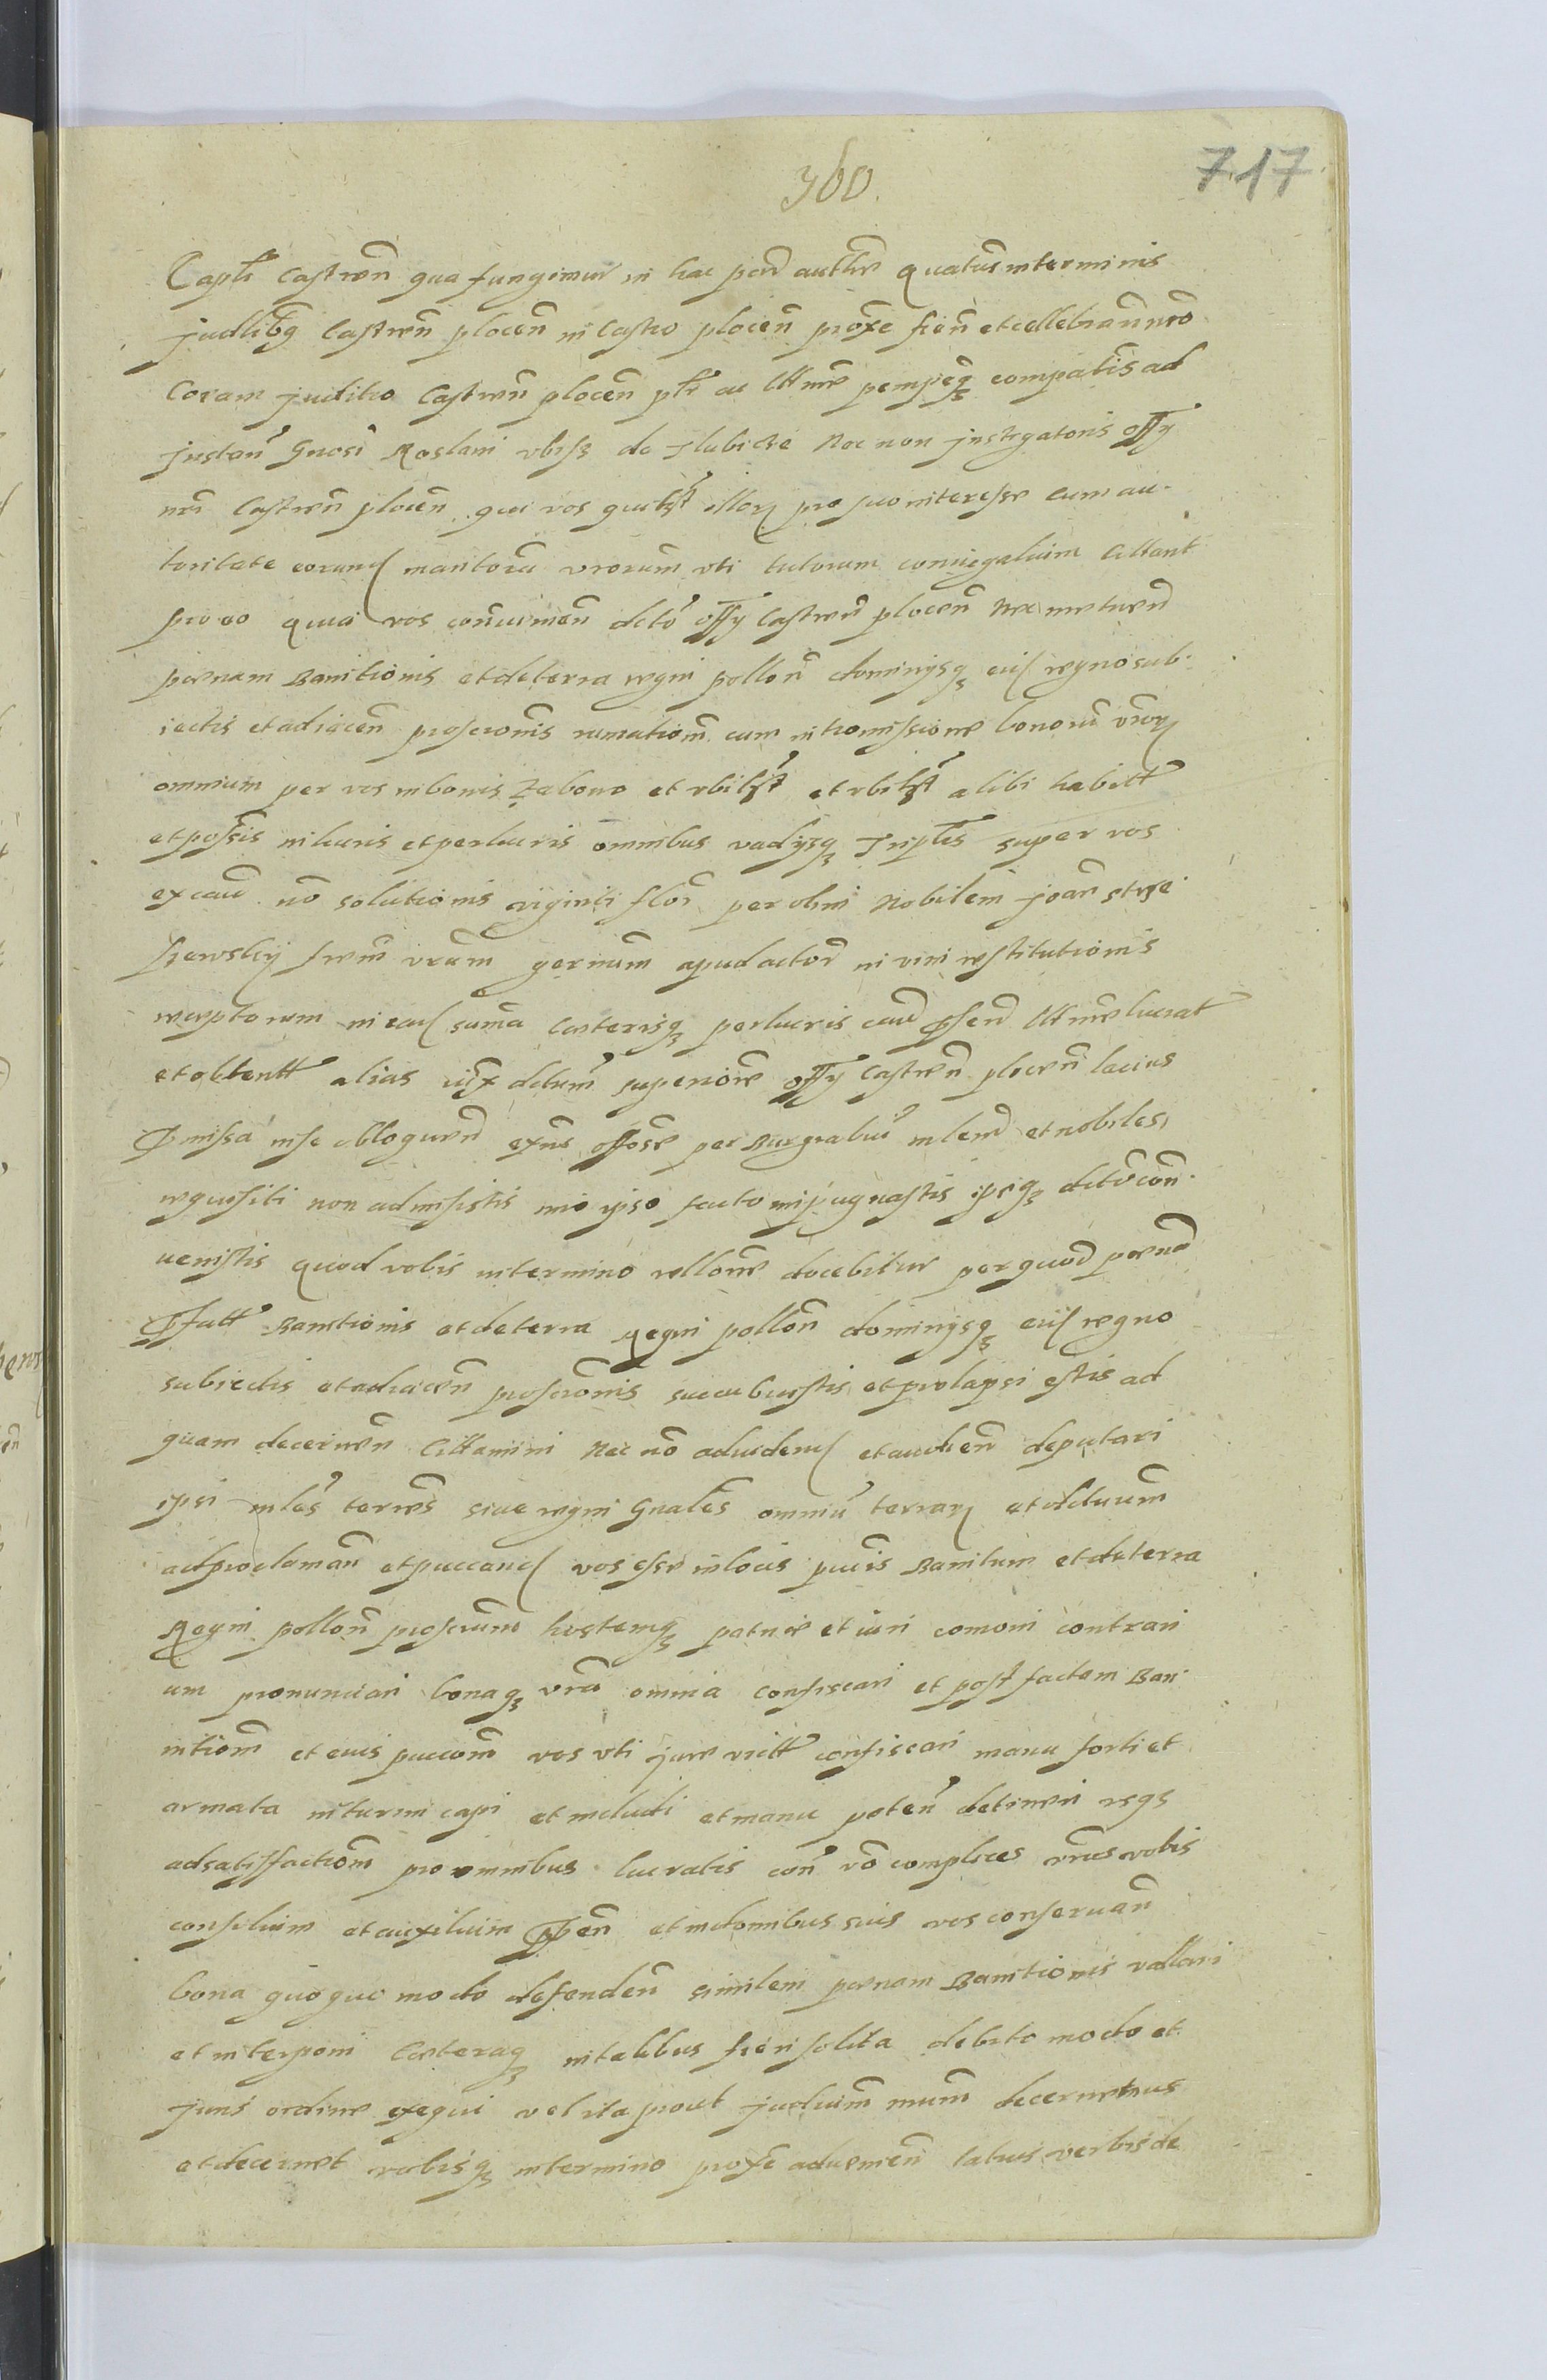 360.
717
Captli Castren̄ qua fungimur in hac par̄ authte quatus̄ in terminis
judlibq Castren̄ plocen̄ in Castro plocen̄ prox̄e fien̄ et cellebran̄
Coram juditio Castren̄ plocen̄ ac ltt̄ime compeatis ad
Instan̄ Gn̄osi Roslani de Tlubicze Nec non Instigatoris offy
nri Castren̄ plocen̄ qui vos quibst illor pro suo interesse cum au-
toritate eorund maritor̄u vr̄orum vti tutorum coniugalium Cittant
pro eo quia vos con̄uinien̄ dcto offy Castren̄ plocen̄ Nec metuen̄
pœnam Banitionis et de terra regni pollon̄ dominysq eiusd regno sub-
iectis et adiacen̄ proscron̄is cum intromissione bonoru vror
omnium per vos in bonis Zabono et vbilst et vbilst alibi habitt
et possis in lucris et perlucris omnibus vadysq Triptis super vos
ex cau no solutionis viginti flor per olim Nobilem Joan̄ Strze
szewsky frem̄ vrum germm̄ apud actor̄ in vim restitutionis
receptorum in ead suma Cæterisq perlucris cau ltt̄ime lucrat
et obtentt alias superiore offy Castren̄ plocen̄ lacius
p̄missa in se obloquen̄ offose per Burgrabiu mlem et nobiles
requisiti non admisistis imo ipso facto impugnastis ipsiq dcto con-
uenistis quod vobis in termino rellon̄e docebitur per quod pœna
p̄fatt Banitionis et de terra Regni pollon̄ dominysq eiusd regno
subiectis et adiacen̄ proscron̄is succubuistis et prolapsi estis ad
quam decernen̄ Cittamini Nec no̅ ad videnᵈ et audien̄ deputari
ipsi mles terres siue regni Gnales omniu terrar et districtuum
ad proclaman̄ et puccand vos esse in locis pucis Banitum et de terra
Regni pollon̄ proscrum hostemq patriæ et iuri comoni contrari
um pronunciari bonaq vra omnia confiscari et post factam Ban-
nitiom̄ et eius puccom̄ vos vti jure victt confiscari manu forti et
armata in turrim capi et includi et manu poten̄ detineri vsq
ad satisfactiom̄ pro omnibus lucratis con̄ vo complices vros vobis
consilium et auxilium p̄ben̄ et in domibus suis vos conseruan̄
bona quoque modo defenden̄ similem pœnam Banitionis vallari
et interponi Cæteraq in talibus fieri solita debito modo et
juris ordine exequi vel ita prout judicium̄ nrum̄ decernemus
et decernet vobisq in termino prox̄e aduenien̄ latius verbis de